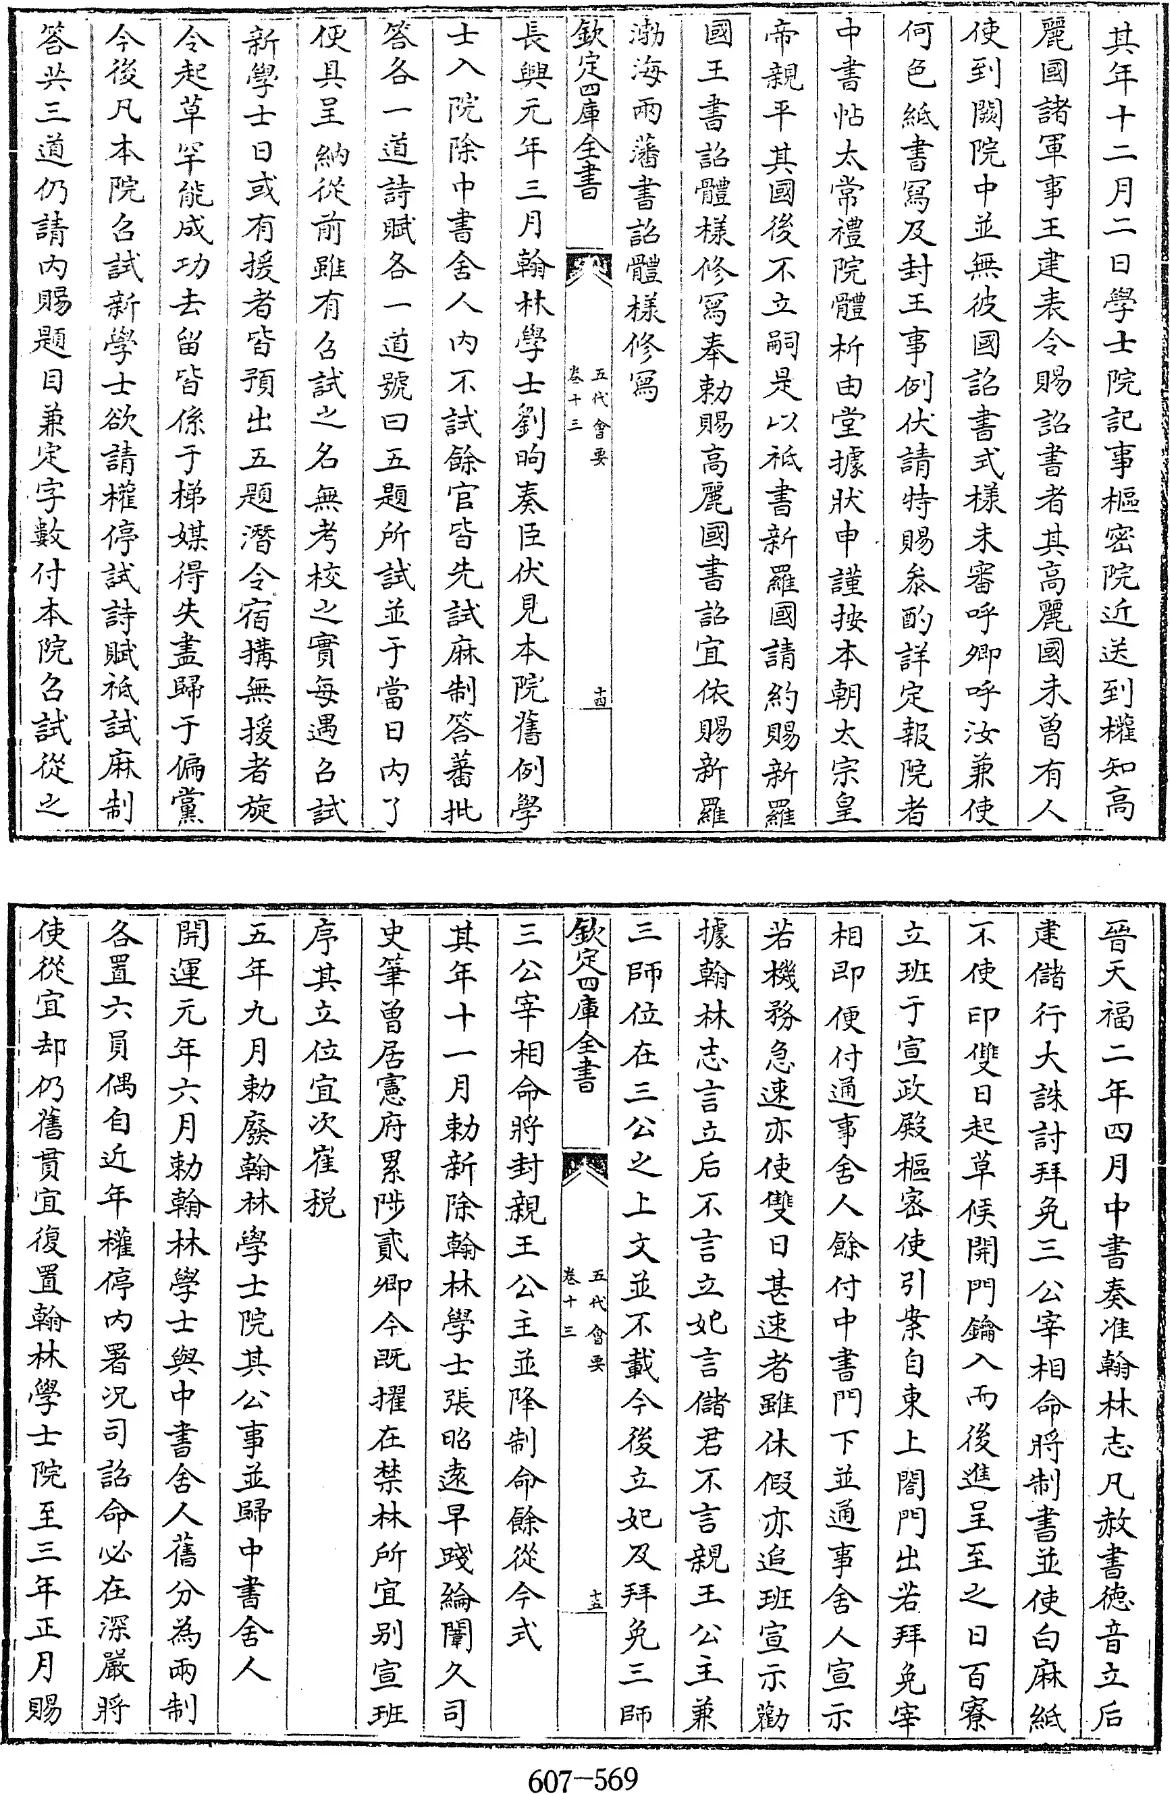 其年十二月二日學士院記事樞密院近送到權知高
麗國諸軍事王建表令賜詔書者其高麗國未曾有人
使到闕院中並無彼國詔書式樣未審呼卿呼汝兼使
何色紙書寫及封王事例伏請特賜叅酌詳定報院者
中書帖太常禮院體析由堂據狀申謹按本朝太宗皇
帝親平其國後不立嗣是以祗書新羅國請約賜新羅
國王書詔體樣修寫奉勅賜高麗國書詔宜依賜新羅
渤海兩藩書詔體樣修寫
欽定四庫全書
五代會要
卷十三
十四
長興元年三月翰林學士劉昫奏臣伏見本院舊例學
士入院除中書舍人內不試餘官皆先試麻制答蕃批
答各一道詩賦各一道號曰五題所試並于當日內了
便具呈納從前雖有召試之名無考校之實每遇召試
新學士日或有援者皆預出五題潛令宿搆無援者旋
令起草罕能成功去留皆係于梯媒得失盡歸于偏黨
今後凡本院召試新學士欲請權停試詩賦祗試麻制
答共三道仍請內賜題目兼定字數付本院召試從之
晉天福二年四月中書奏准翰林志凡赦書德音立后
建儲行大誅討拜免三公宰相命將制書並使白麻紙
不使印雙日起草候開門鑰入而後進呈至之日百寮
立班于宣政殿樞密使引案自東上閤門出若拜免宰
相即便付通事舍人餘付中書門下並通事舍人宣示
若機務急速亦使雙日甚速者雖休假亦追班宣示勸
據翰林志言立后不言立妃言儲君不言親王公主兼
三師位在三公之上文並不載今後立妃及拜免三師
欽定四庫全書
五代會要
卷十三
十五
三公宰相命將封親王公主並降制命餘從令式
其年十一月勅新除翰林學士張昭遠早踐綸闈久司
史筆曾居憲府累陟貳卿今既擢在禁林所宜別宣班
序其立位宜次崔稅
五年九月勅廢翰林學士院其公事並歸中書舍人
開運元年六月勅翰林學士與中書舍人舊分為兩制
各置六員偶自近年權停內署况司詔命必在深嚴將
使從宜却仍舊貫宜復置翰林學士院至三年正月賜
607-569